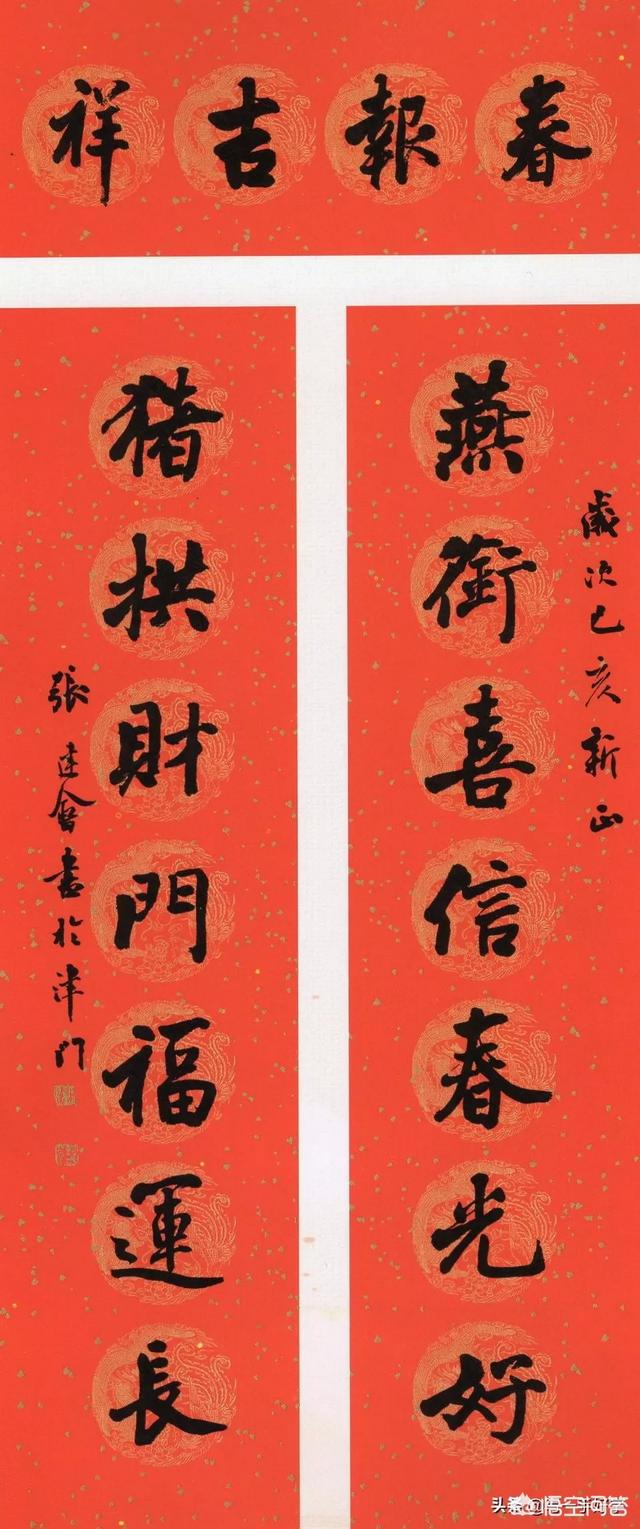 春報吉祥
燕銜喜信春光好
歲次己亥新正
豬拱財門福運長
張建會書於津門
头条
悟空问答